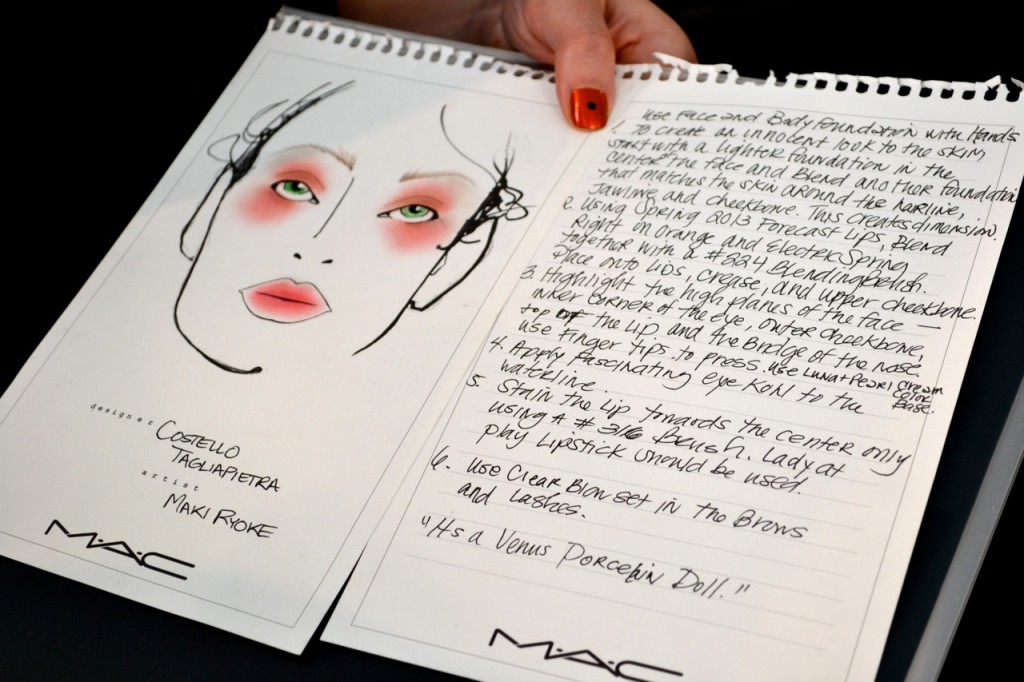 designer COSTELLO
TAGLIAPIETRA
artist MAKI RYOKE
M·A·C
Use Face and Body Foundation with Hands
1. To create an innocent look to the skin
start with a lighter foundation in the
center of the face and Blend another foundation
that matches the skin around the hairline,
Jawline and cheekbone. This creates dimension.
2. Using Spring 2013 Forecast Lips, Blend
Right on Orange and Electric Spring
together with a #224 Blending Brush.
Place onto Lids, crease, and upper cheekbone.
3. Highlight the high planes of the face —
inner corner of the eye, outer cheekbone,
top of the Lip and the Bridge of the nose.
Use finger tips to press. Use Luna + Pearl Cream
Color
Base.
4. Apply Fascinating eye Kohl to the
waterline.
5. Stain the Lip towards the center only
using A #316 Brush. Lady at
play Lipstick should be used.
6. Use Clear Brow set in the Brows
and Lashes.
"Its a Venus Porcelin Doll."
M·A·C